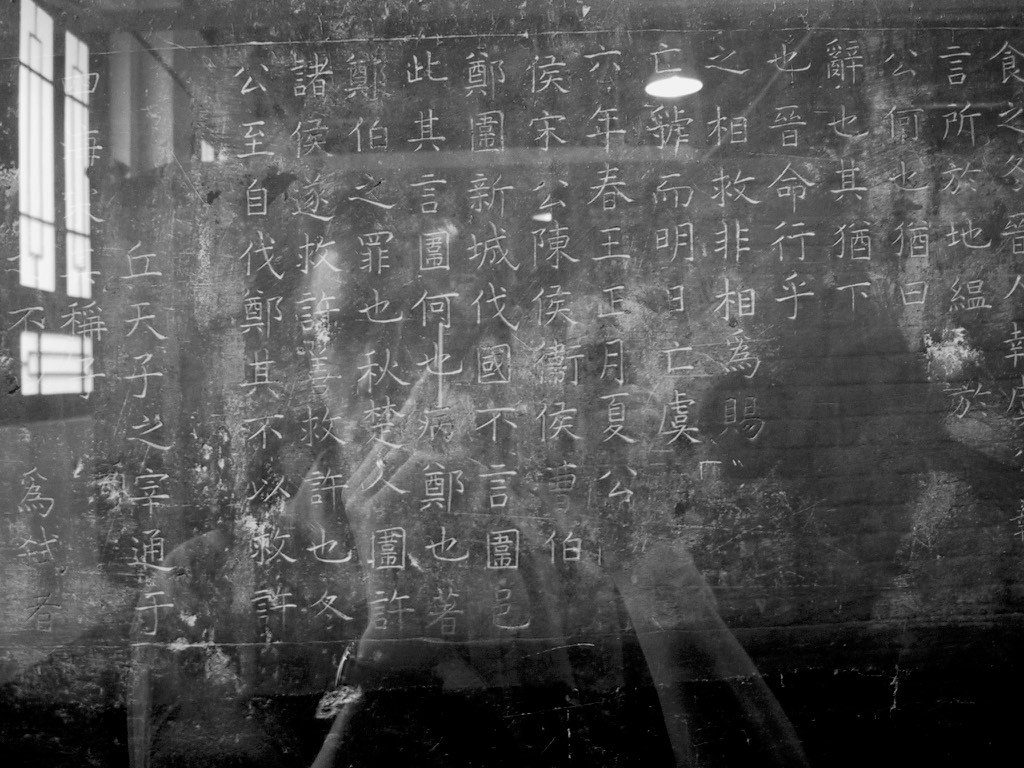 食之冬晉人執虞公執
言所於地緼於
公何也猶曰
辭也其猶下
也晉命行乎
之相救非相為賜
亡虢而明日亡虞
六年春王正月夏公
侯宋公陳侯衞侯曹伯
鄭圍新城伐國不言圍邑
此其言圍何也病鄭也著
鄭伯之罪也秋楚人圍許
諸侯遂救許善救許也冬
公至自伐鄭其不以救許
丘天子之宰通于
稱子
不為弒者